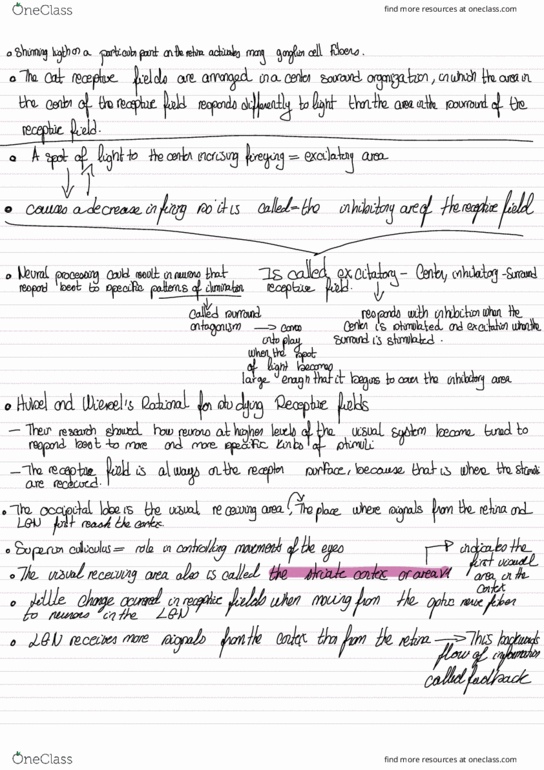 OneClass
find more resources at oneclass.com
Shinning ligth on a particular point on the retina activates many ganglion cell fibers.
The Cat receptive fields are arranged in a center surround organization, in which the area in
the center of the receptive field responds differently to light than the area in the surround of the
receptive field.
A spot of light to the center incrising = excitatory area
causes a decrease in firing so it is called = the inhibitory area of the receptive field
Neural processing could result in neurons that
respond best to specific patterns of
called surround
antagonism
comes
into play
when the spot
of light becomes
large enogh that it begins to cover the inhibitory area
Is called excitatory - Center, inhibitory - surround
receptive field.
responds with inhibition when the
center is stimulated and excitation when the
surround is stimulated.
Hubel and Wiesel's Rational for studying Receptive fields
- Their research showed how neurons at higher levels of the visual system become tuned to
respond best to more and more specific kinds of stimuli
- The receptive field is always on the receptor surface, because that is where the stimuli
are received.
The occipital lobe is the visual receiving area, The place where signals from the retina and
LGN first reach the cortex.
Superior colliculus = role in controlling movements of the eyes
The visual receiving area also is called the striate cortex or area V1
indicates the
first visual
area in the
cortex
little change occurred in receptive fields when moving from the optic nerve fiber
to neurons in the LGN
LGN receives more signals from the cortex than from the retina
This backwards
flow of information
called feedback
OneClass
find more resources at oneclass.com